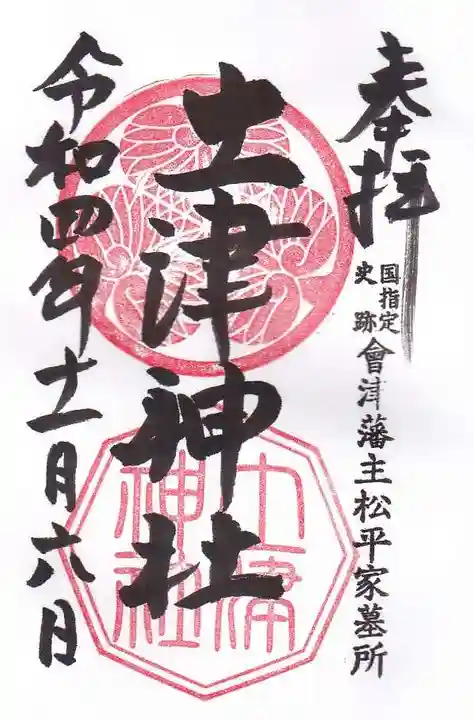 奉拝
国指定
史跡
會津藩主松平家墓所
土津神社
土津
神社
令和四年十一月六日